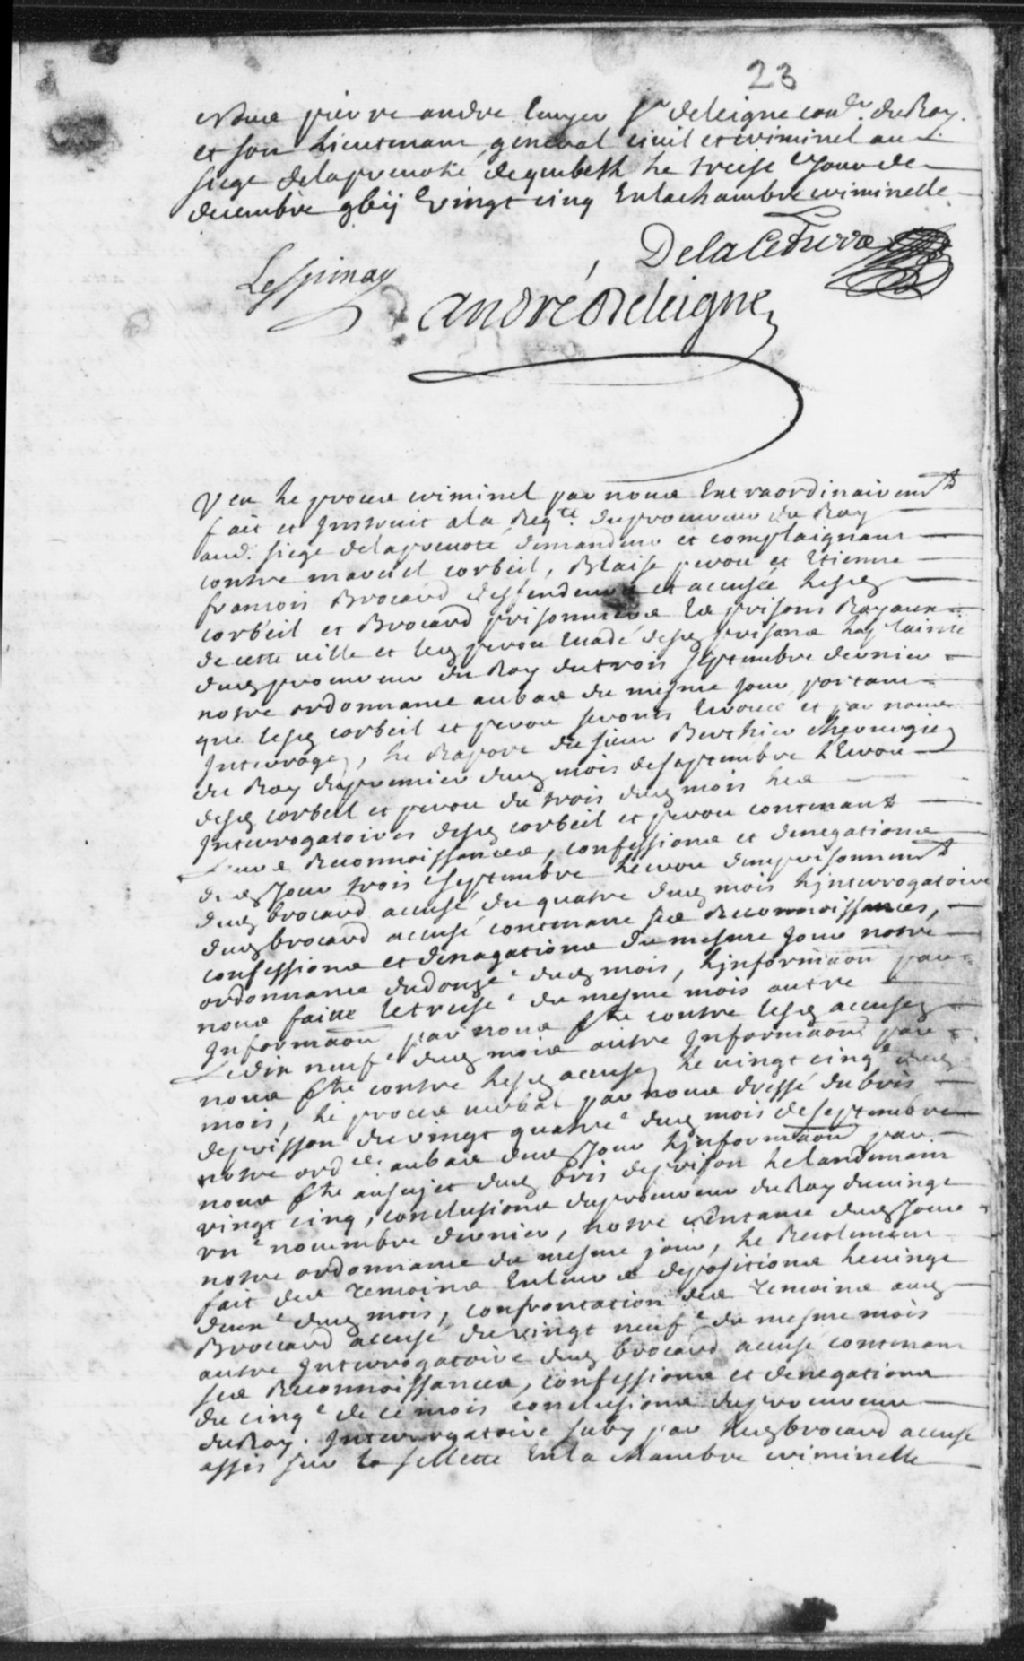 23
Nous pierre andre Ecuyer Sr deleigne conser. du Roy.
et son Lieutenant general civil et criminel au
siege delaprevosté dequebeck Le treise e Jour de
decembre gbij c vingt cinq Enlachambre criminelle
DelaCetierre
Lespinay
André Deleigne
Veu Le procés criminel par nous Extraordinairemt
fait et Instruit ala Reqte. du procureur du Roy
aud. siege delaprevoté demandeur et complaignant
contre marciel corbeil, Blaise perou et Etienne
francois Brocard deffendeurs et accusés Lesd
corbeil et Brocard prisonniers Es prisons Royaux
de cette ville et led perou Evadé desd prisons Laplainte
dud procureur du Roy du trois septembre dernier
notre ordonnance aubas du mesme jour portant
que lesd corbeil et perou seront Ecroüés et par nous
Interrogez, Le Raport du sieur Berthier chirurgien
du Roy dupremier dud mois deseptembre LEcrou
desd corbeil et perou du trois dud mois Les
Interrogatoires desd corbeil et perou contenant
Leurs Reconnoissances, confessions et denegations
dud Jour trois septembre Lecrou demprisonnemt
dud brocard accusé du quatre dud mois Linterrogatoire
dud brocard accusé contenant ses Reconnoissances,
confessions et denagations du mesme Jour notre
ordonnance dudouze e dud mois, Linformaõn par
nous faitte Letreise e du mesme mois autre
Informaõn par nous fte contre lesd accusez
Ledix neuf e dud mois autre Informaõn par
nous fte contre Lesd accusez Le vingt cinq e dud
mois, Le procés verbal par nous dressé dubris
deprison du vingt quatre e dud mois deseptembre
notre ordce. aubas dud Jour Linformaõn par
nous fte ausujet dud bris deprison Lelandemain
vingt cinq, conclusions duprocureur du Roy duvingt
un e novembre dernier, notre sentance dud Jour
notre ordonnance du mesme jour, Le Recolement
fait des temoins Enleurs depositions Levingt
deux e dud mois, confrontation des temoins aud
Brocard accusé du vingt neuf e du mesme mois
autre Interrogatoire dud brocard accusé contenant
ses Reconnoissances, confessions et denegations
du cinq e de ce mois conclusions duprocureur
du Roy. Interrogatoire suby par Led brocard accusé
assis sur la sellette Enla chambre criminelle